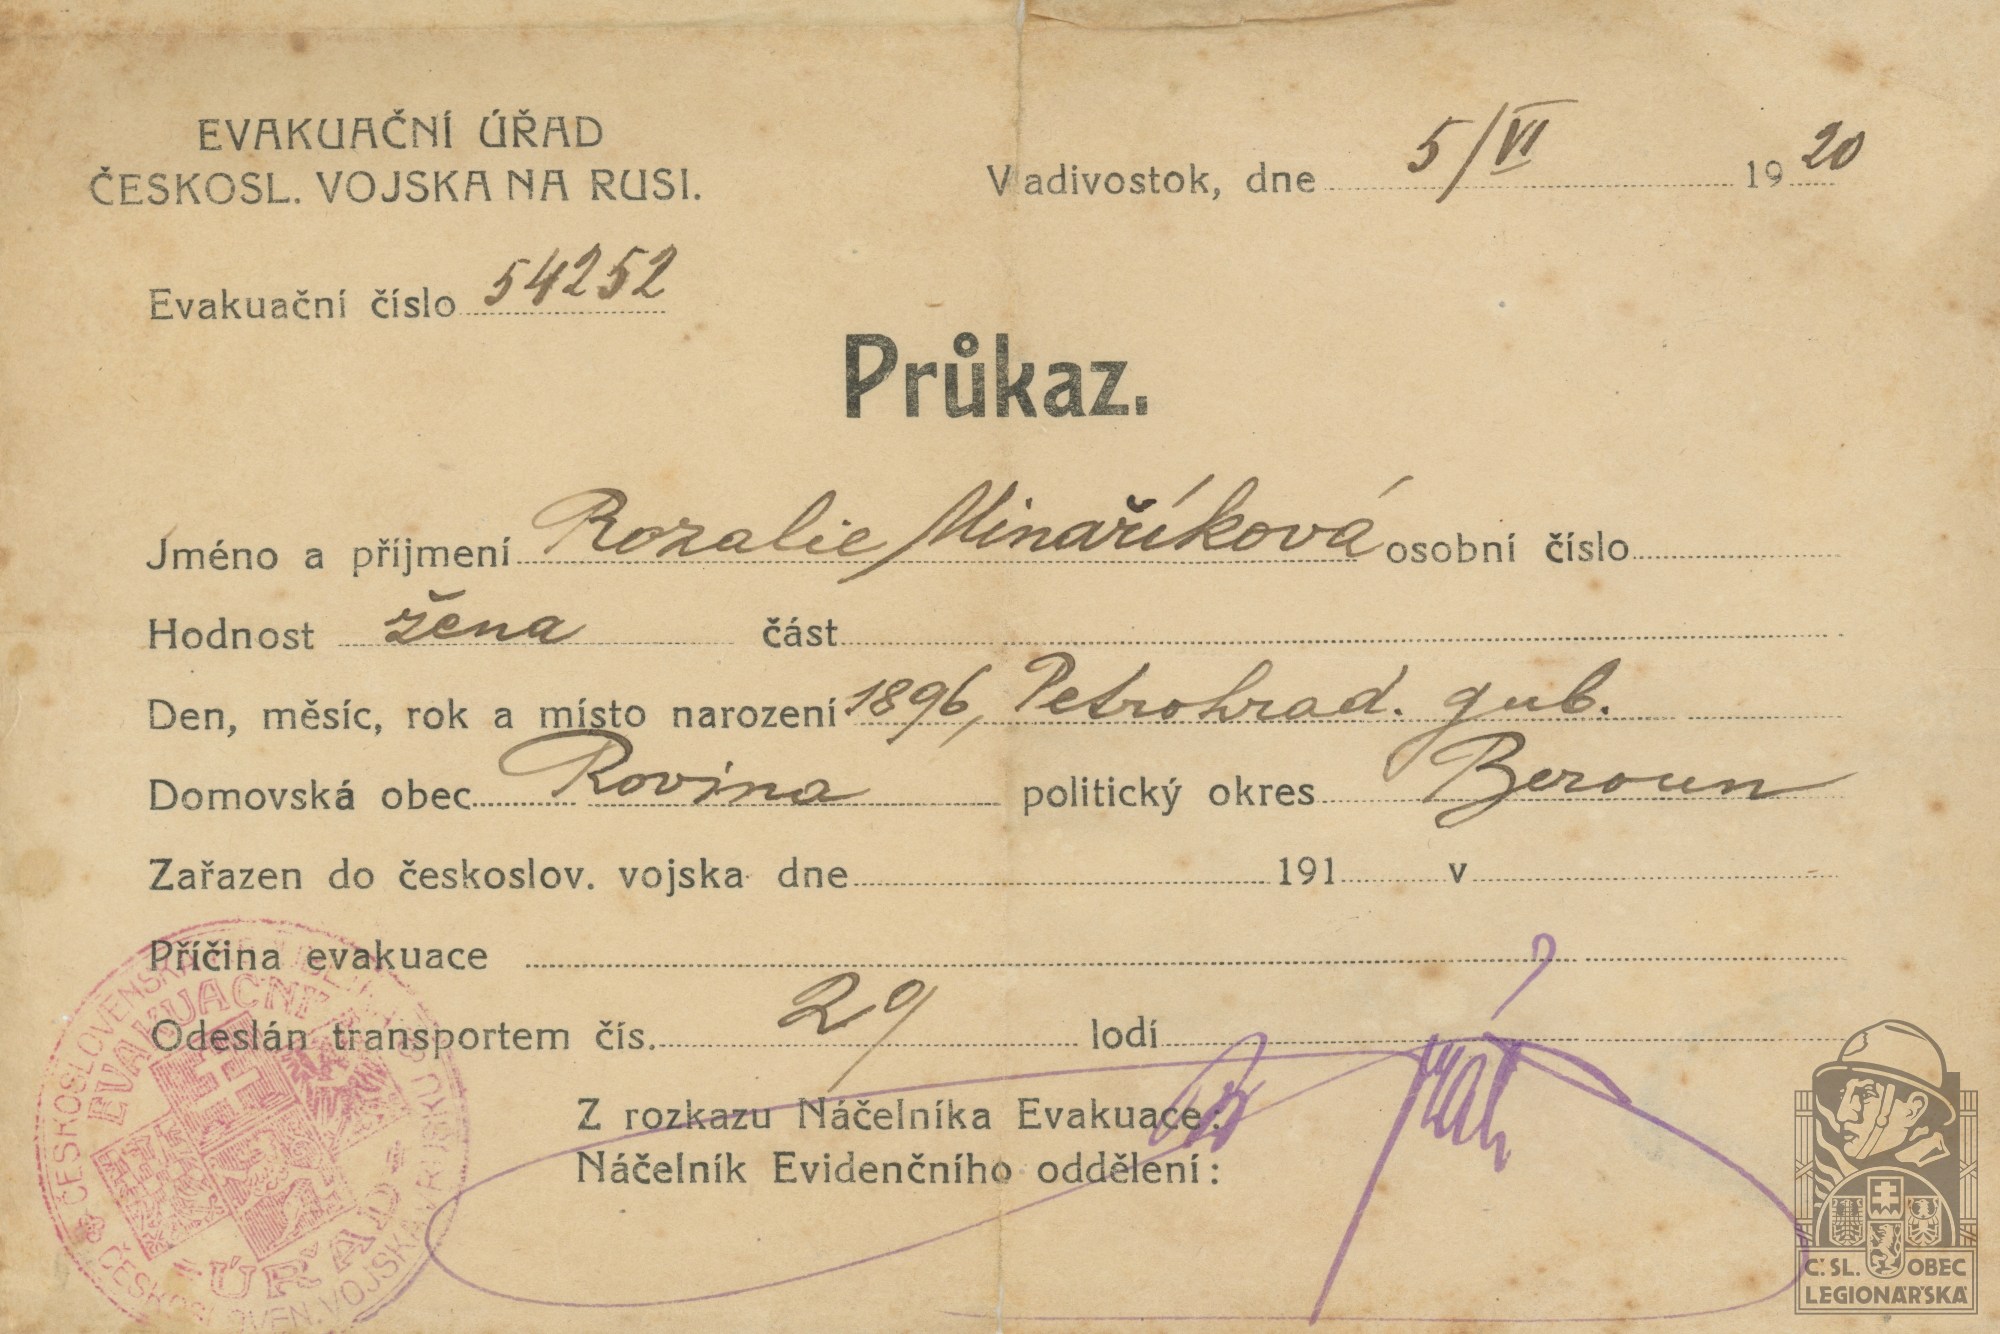 EVAKUAČNÍ ÚŘAD
ČESKOSL. VOJSKA NA RUSI.
Vladivostok, dne 5/VI 1920
Evakuační číslo 54252
Průkaz.
Jméno a příjmení Rozalie Minaříková osobní číslo
Hodnost žena část
Den, měsíc, rok a místo narození 1896, Petrohrad. gub.
Domovská obec Rovina politický okres Beroun
Zařazen do českoslov. vojska dne 191 v
Příčina evakuace
Odeslán transportem čís. 29 lodí
Z rozkazu Náčelníka Evakuace:
Náčelník Evidenčního oddělení:
EVAKUAČNÍ
ÚŘAD
Č. SL. OBEC
LEGIONÁŘSKÁ